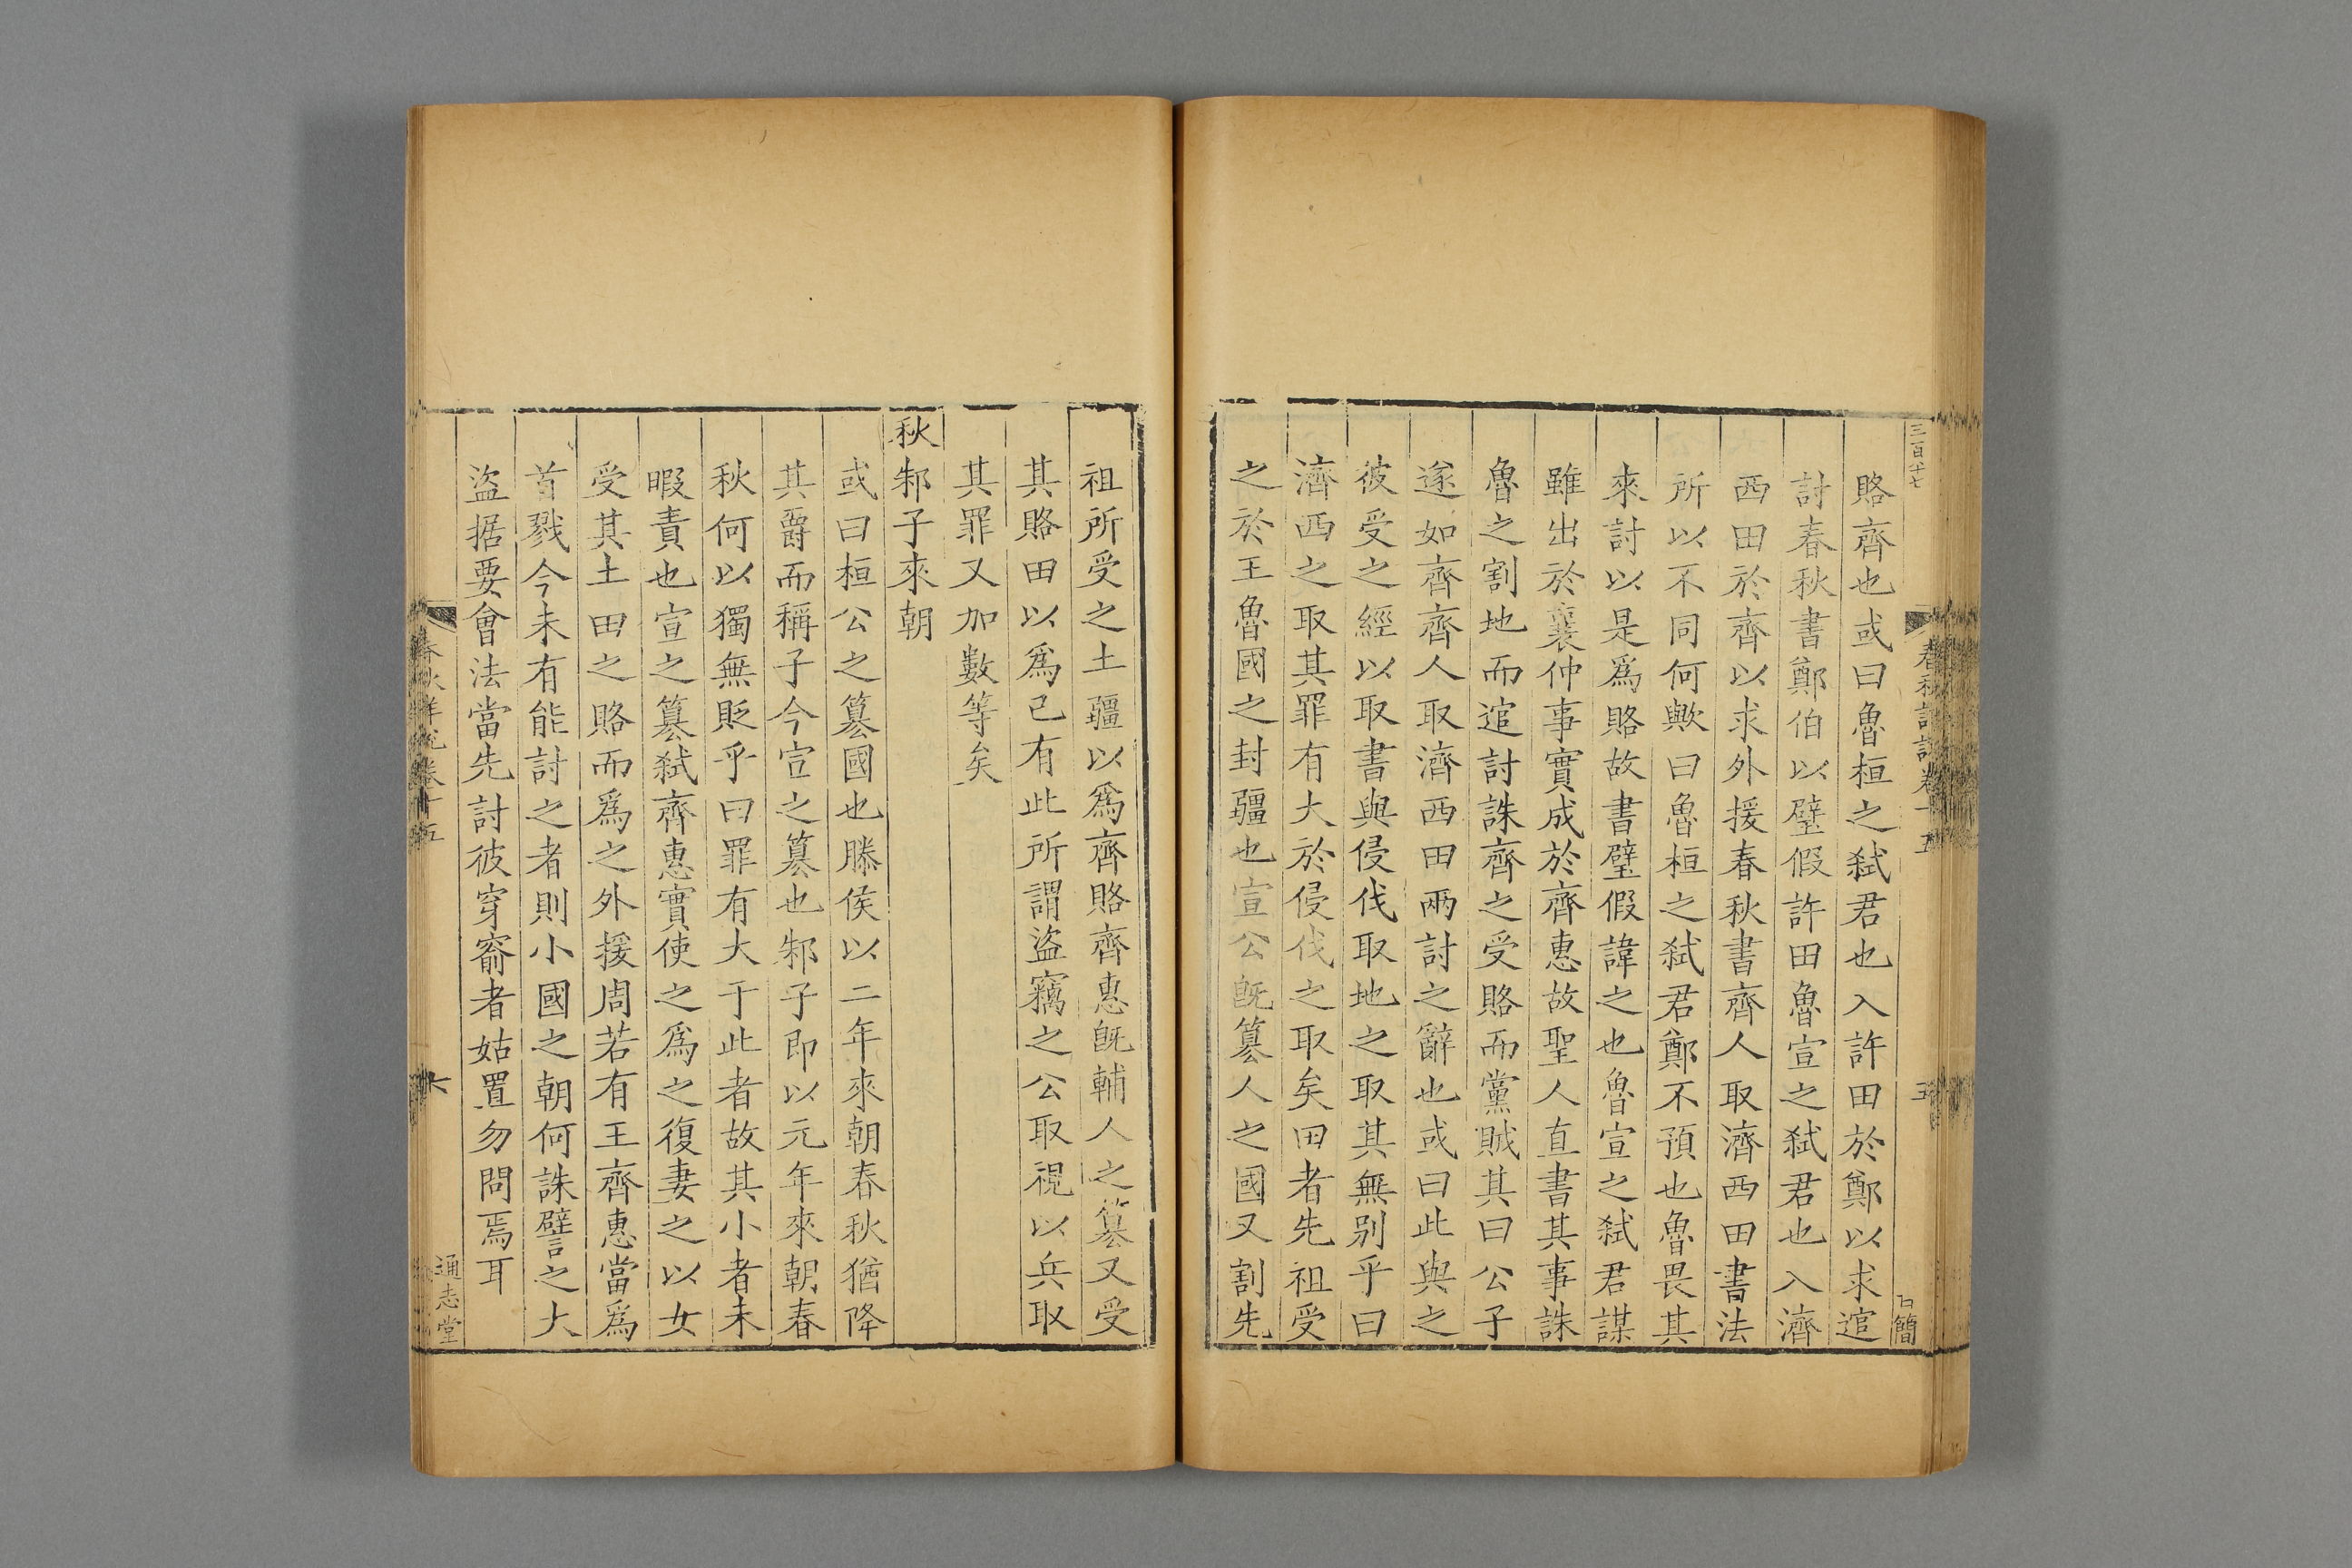 三百十七
春秋詳說卷十五
五
賂齊也或曰魯桓之弒君也入許田於鄭以求逭
討春秋書鄭伯以璧假許田魯宣之弒君也入濟
西田於齊以求外援春秋書齊人取濟西田書法
所以不同何歟曰魯桓之弒君鄭不預也魯畏其
來討以是爲賂故書璧假諱之也魯宣之弒君謀
雖出於襄仲事實成於齊惠故聖人直書其事誅
魯之割地而逭討誅齊之受賂而黨賊其曰公子
遂如齊齊人取濟西田兩討之辭也或曰此與之
彼受之經以取書與侵伐取地之取其無别乎曰
濟西之取其罪有大於侵伐之取矣田者先祖受
之於王魯國之封疆也宣公旣篡人之國又割先
祖所受之土疆以爲齊賂齊惠旣輔人之篡又受
其賂田以爲已有此所謂盜竊之公取視以兵取
其罪又加數等矣
秋邾子來朝
或曰桓公之篡國也滕侯以二年來朝春秋猶降
其爵而稱子今宣之篡也邾子即以元年來朝春
秋何以獨無貶乎曰罪有大于此者故其小者未
暇責也宣之篡弒齊惠實使之爲之復妻之以女
受其土田之賂而爲之外援周若有王齊惠當爲
首戮今未有能討之者則小國之朝何誅譬之大
盜据要會法當先討彼穿窬者姑置勿問焉耳
春秋詳說卷十五
六
通志堂